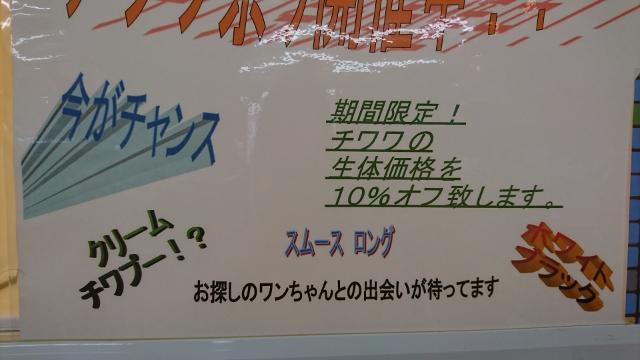 開催中！！
今がチャンス
期間限定！
チワワの
生体価格を
10%オフ致します。
クリーム
チワプー！？
スムース ロング
ホワイト
ブラック
お探しのワンちゃんとの出会いが待ってます